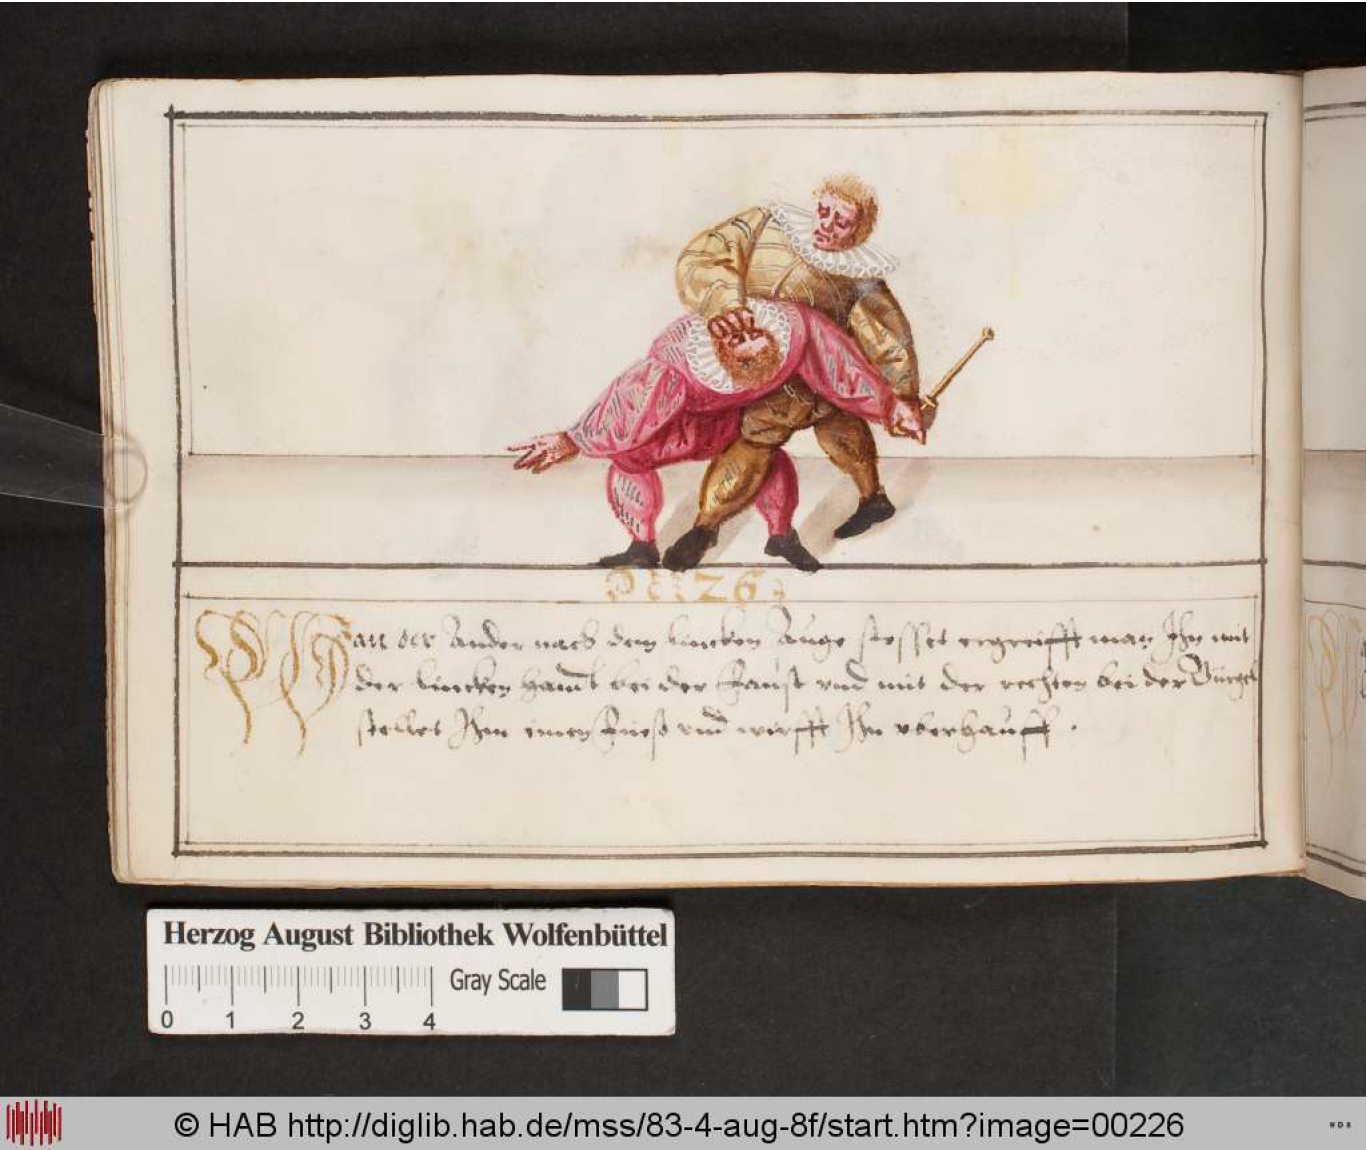 26
Wan der Ander nach dem lincken Auge stosset ergreifft man Ihn mit
der lincken handt bei der Faust vnd mit der rechten bei der Gurgel
stellet Ihm einen Fuess vnd wirfft Ihn vberhauff .
Herzog August Bibliothek Wolfenbüttel
Gray Scale
0 1 2 3 4
© HAB http://diglib.hab.de/mss/83-4-aug-8f/start.htm?image=00226